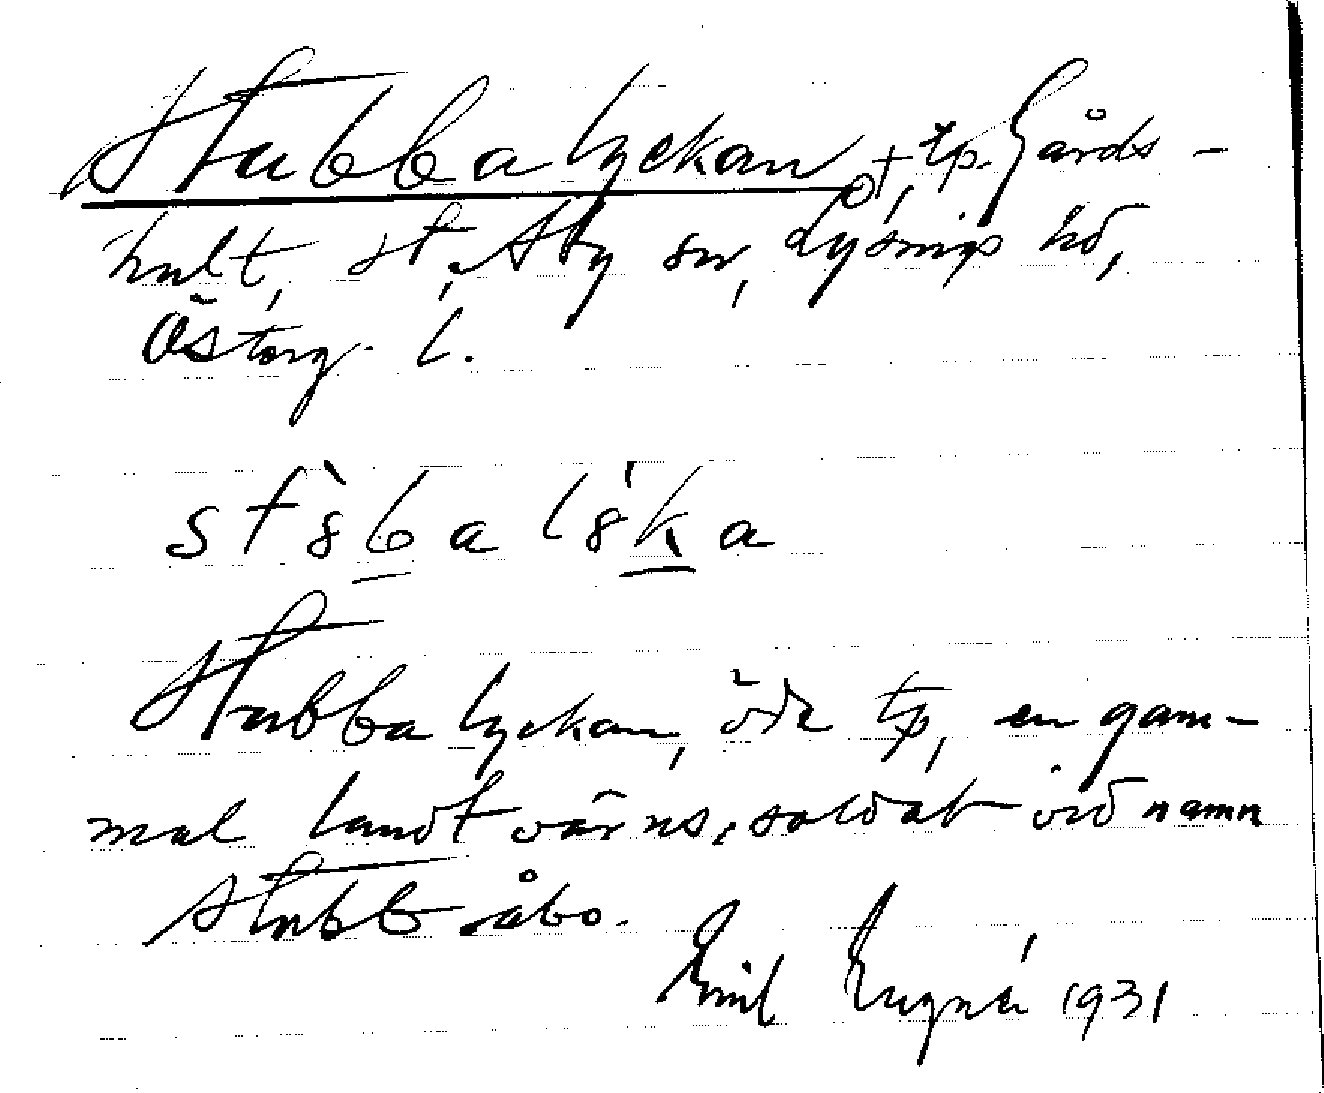 Stubbalyckan, †, tp. Gårds-
hult, st, Aby sn, Lysings hd,
Östergl.
st8̀ba l8́ka
Stubbalyckan, öde tp, en gam-
mal landtvärns-soldat vid namn
Stubb åbo.
Emil 1931